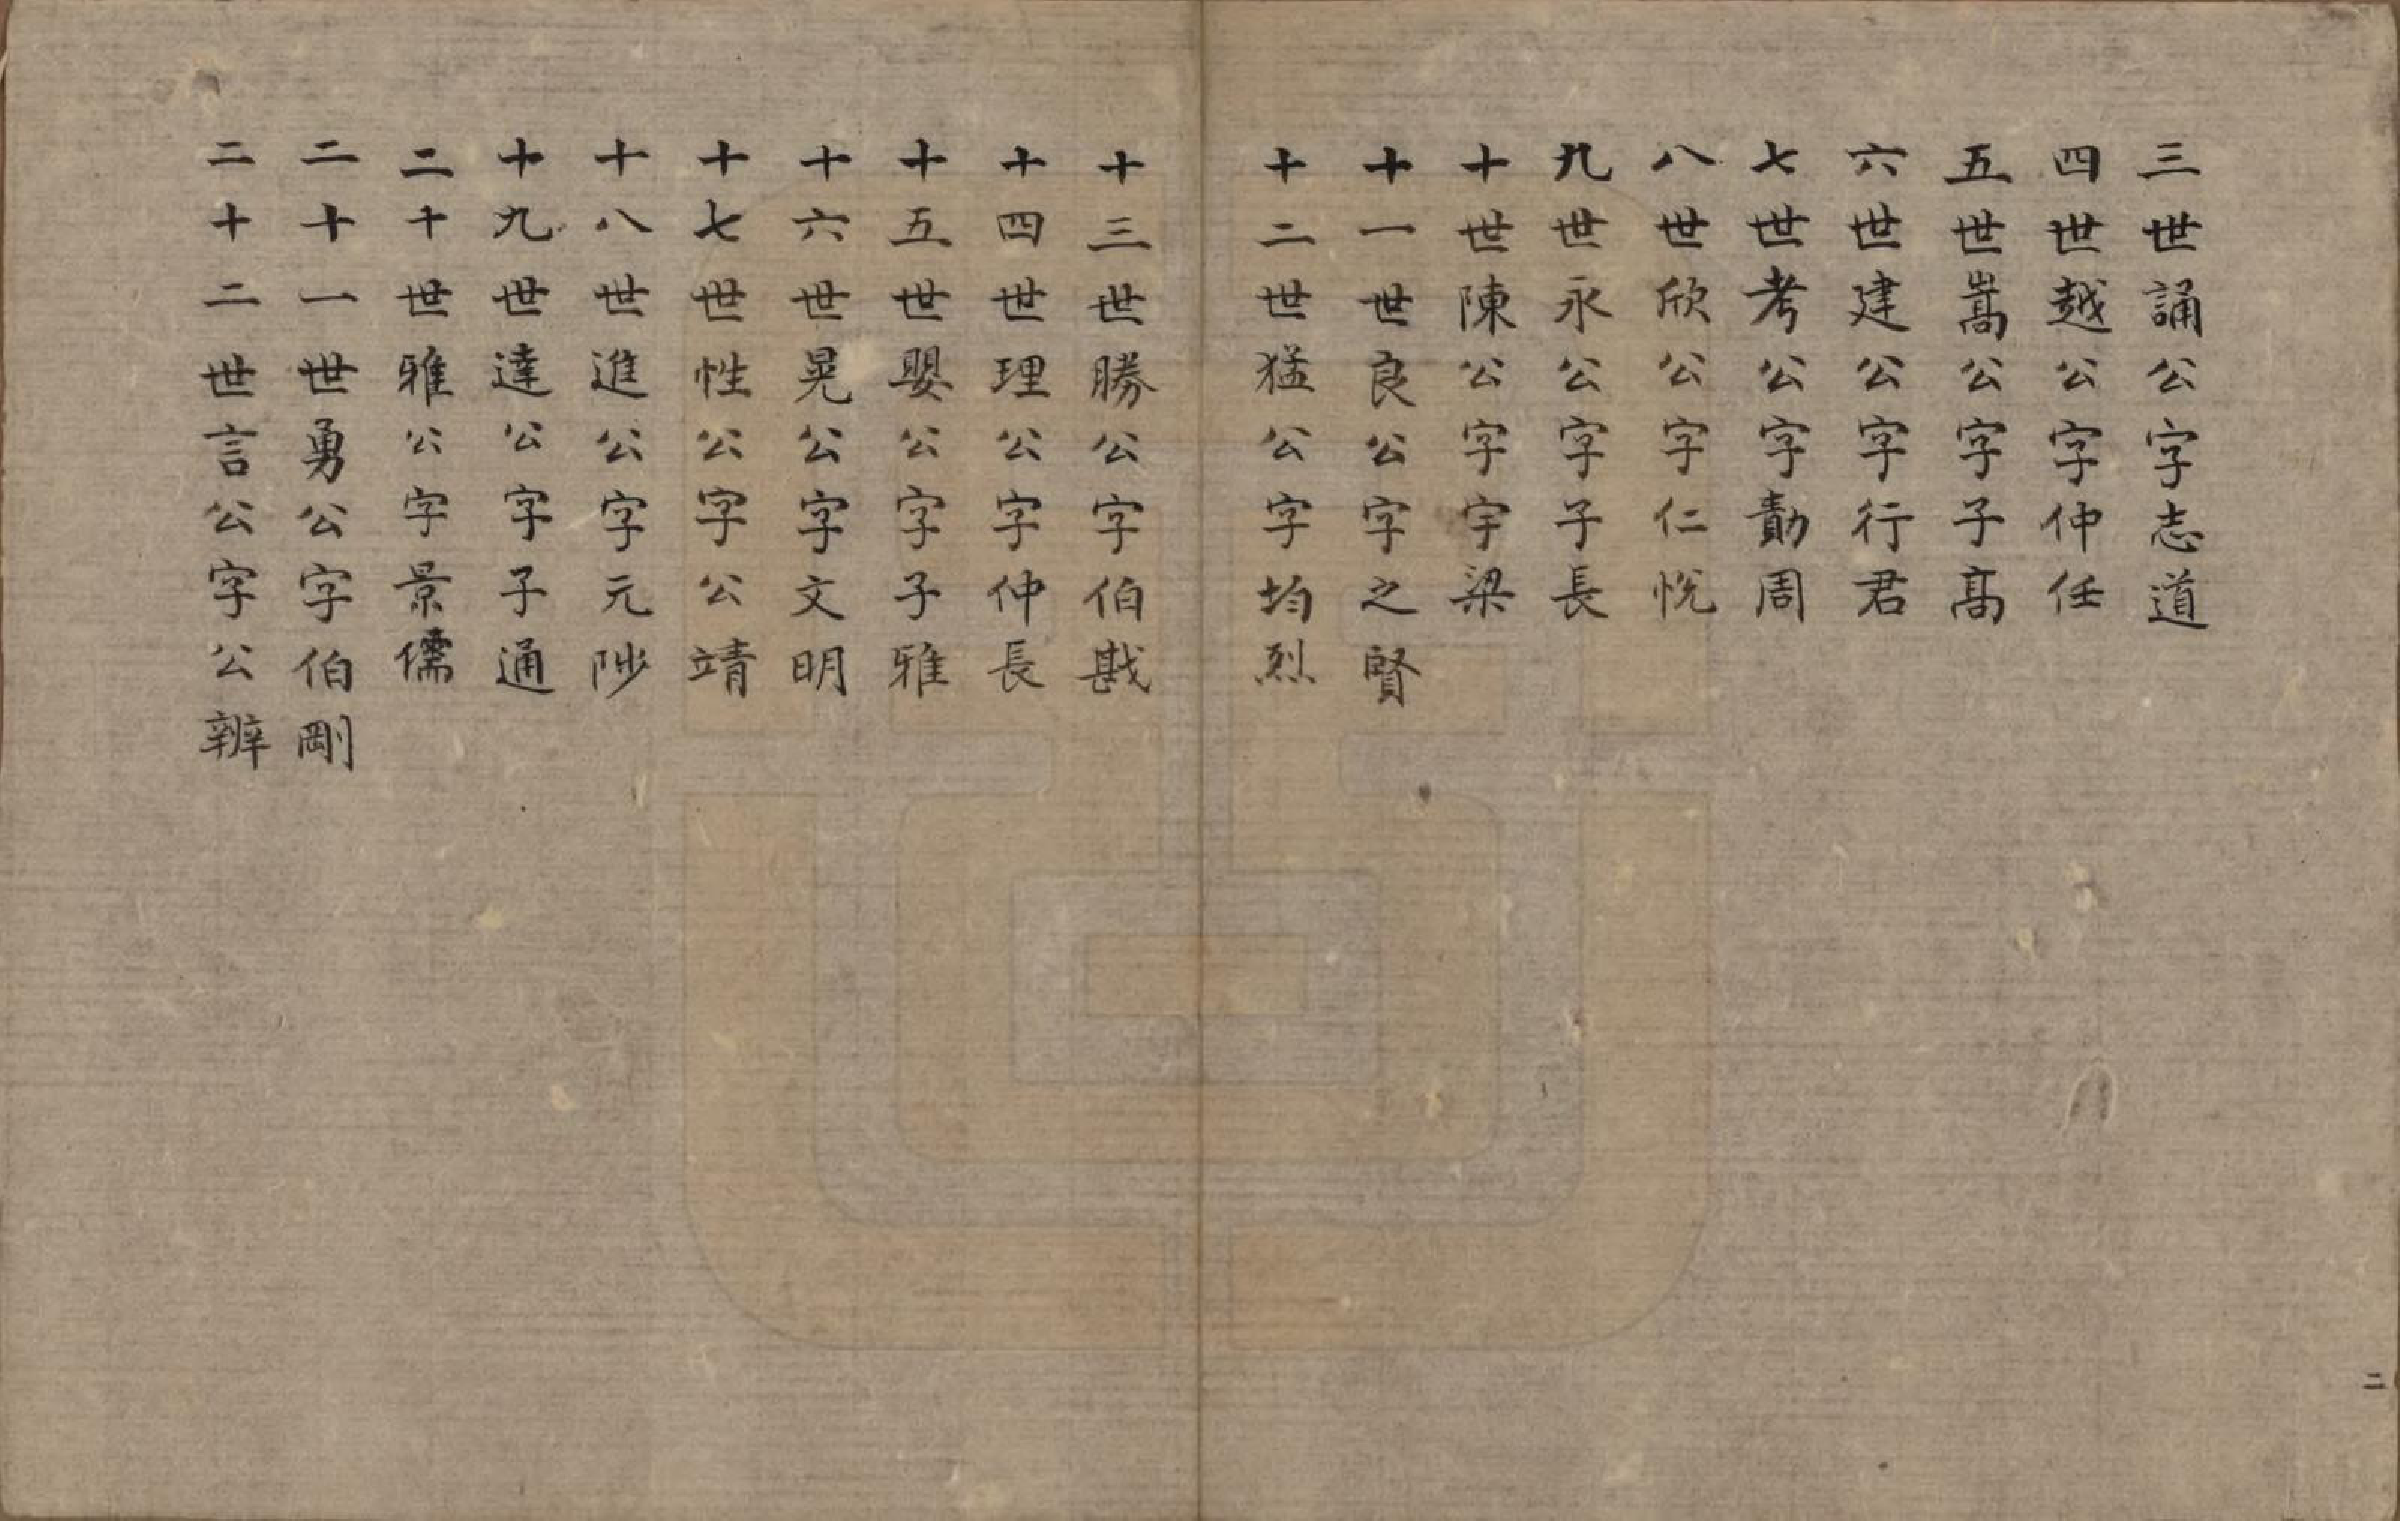 三世誦公字志道
四世越公字仲任
五世嵩公字子髙
六世建公字行君
七世考公字勣周
八世欣公字仁悅
九世永公字子長
十世陳公字宇梁
十一世良公字之賢
十二世猛公字均烈
十三世勝公字伯戡
十四世理公字仲長
十五世嬰公字子雅
十六世晃公字文明
十七世性公字公靖
十八世進公字元陟
十九世達公字子通
二十世雅公字景儒
二十一世勇公字伯剛
二十二世言公字公辨
二